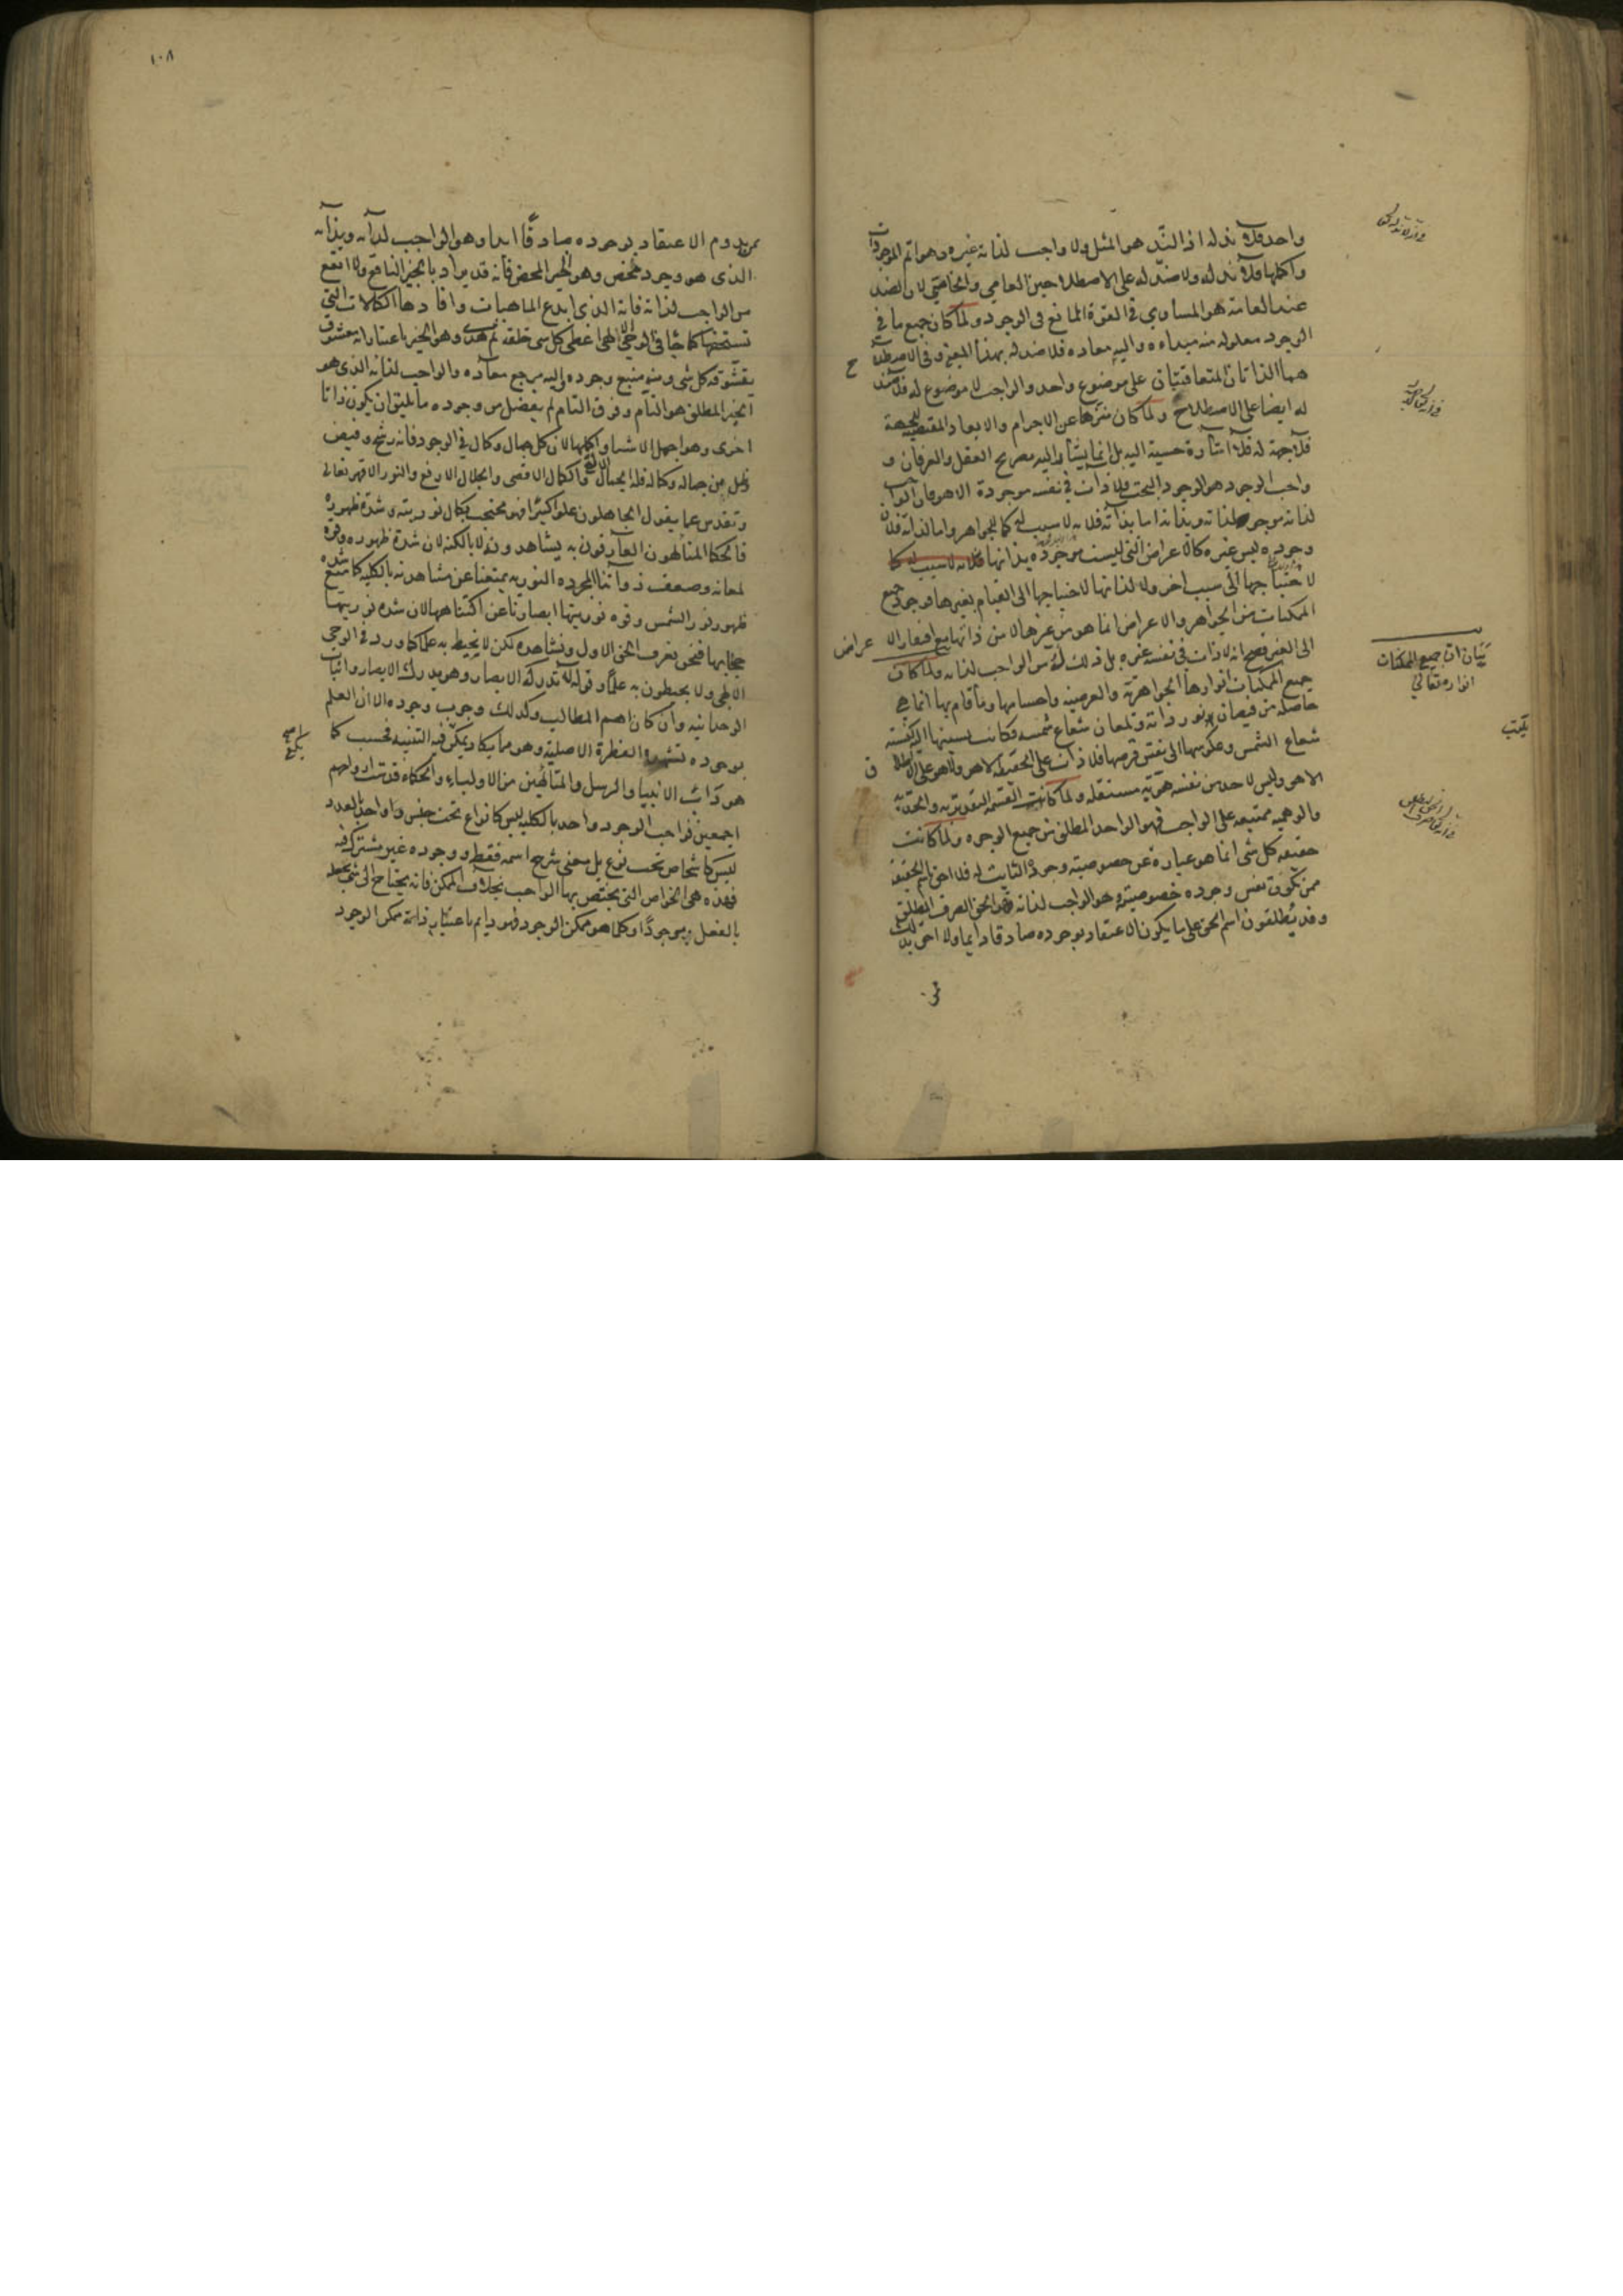 واحد فلا ند له اذ الند هو المثل ولا واجب لذاته غيره وهو اتم الموجودات
واكملها فلا ند له ولا ضد له على الاصطلاحين العامي والخاصي لان الضد
عند العامة هو المساوي في القوة المانع في الوجود ولما كان جميع ما في
الوجود معلوله منه مبداءه واليه معاده فلا ضد له بهذا المعنى وفي الاصطلاح
هما الذاتان المتعاقبتان على موضوع واحد والواجب لا موضوع له فلا ضد
له ايضا على الاصطلاح ولما كان منزها عن الاجرام والابعاد المقتضية للجهة
فلا جهة له فلا اشارة حسية اليه بل انما يشار اليه بصريح العقل والعرفان و
واجب الوجود هو الوجود البحت فلا ذات في نفسه موجودة الا هو فان الواجب
لذاته موجود لذاته وبذاته اما بذاته فلانه لا سبب له كما للجواهر واما لذاته فلان
وجوده ليس لغيره كالاعراض التي ليست موجوده بذاتها فلانه لا سبب له كما
لاحتياجها الى سبب اخر ولا لذاتها لاحتياجها الى القيام بغيرها فوجود جميع
الممكنات من الجواهر والاعراض انما هو من غيرها لا من ذاتها مع افتقار الاعراض
الى الغير فصح انه لا ذات في نفسه غيره بل ذلك له من الواجب لذاته ولما كان
جميع الممكنات انوارها الجواهرية والعرضية واجسامها وما قام بها انما هي
حاصله من فيضان نور ذاته ولمعان شعاع شمسه فكانت نسبتها اليه كنسبة
شعاع الشمس وعكوسها الى نفس قرصها فلا ذات على الحقيقة الا هو ولا هو على الاطلاق
الا هو وليس لاحد من نفسه هوية مستقله ولما كانت القسمة التقديرية والحدية
والوهمية ممتنعه على الواجب فهو الواحد المطلق من جميع الوجوه ولما كانت
حقيقة كل شى انما هو عبارة عن خصوصية وجوده الثابت له فلا احق باسم الحقيقة
ممن تكون نفس وجوده خصوصيته وهو الواجب لذاته فهو الحق الصرف المطلق
وقد يطلقون اسم الحق على ما يكون الاعتقاد بوجوده صادقا دايما ولا احق بذلك
ممن
بيان ان جميع الممكنات
انواره تعالى
١٠٨
ممن يدوم الاعتقاد بوجوده صادقا ابدا وهو الواجب لذاته وبذاته
الذى هو وجود محض وهو الخير المحض فانه قد يراد بالخير النافع ولا انفع
من الواجب لذاته فانه الذى ابدع الماهيات وافادها الكمالات التي
تستحقها كما جا في الوحي الالهي اعطى كل شى خلقه ثم هدى وهو الخير باعتبار انه معشوق
يتشوقه كل شى ومنه منبع وجوده واليه مرجع معاده والواجب لذاته الذى هو
الخير المطلق هو التام وفوق التام لم يفضل من وجوده ما يليق ان يكون ذاتا
اخرى وهو اجمل الاشيا واكملها لان كل جمال وكمال في الوجود فانه رشح وفيض
وظل من جماله وكماله فله الجمال الابهى والكمال الاقصى والجلال الارفع والنور الاقهر تعالى
وتقدس عما يقول الجاهلون علوا كبيرا فهو محتجب بكمال نوريته وشدة ظهوره
فالحكما المتالهون العارفون به يشاهدونه لا بالكنه لان شدة ظهوره وقوة
لمعانه وضعف ذواتنا المجرده النوريه يمنعنا عن مشاهدته بالكليه كما منع شدة
ظهور نور الشمس وقوه نوريتها ابصارنا عن اكتناهها لان شدة نوريتها
حجابها فنحن نعرف الحق الاول ونشاهده لكن لا نحيط به علما كما ورد في الوحي
الالهى ولا يحيطون به علما وقوله لا تدركه الابصار وهو يدرك الابصار واثبات
الوحدانيه وان كان اهم المطالب وكذلك وجوب وجوده الا ان العلم
بوجوده تشهد به الفطرة الاصلية وهو مما يكاد يمكن فيه التنبيه فحسب كما
هو داب الانبيا والرسل والمتالهين من الاوليا والحكماء قدست ارواحهم
اجمعين فواجب الوجود واحد بالكليه ليس كانواع تحت جنس وواحد بالعدد
ليس كاشخاص تحت نوع بل معنى شرح اسمه فقط ووجوده غير مشترك فيه
فهذه هي الخواص التي يختص بها الواجب بخلاف الممكن فانه يحتاج الى شى يجعله
بالفعل موجودا وكلما هو ممكن الوجود فهو دايم باعتبار ذاته ممكن الوجود